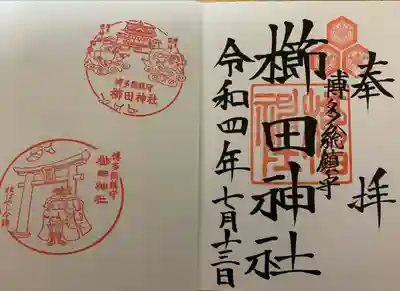 奉拝
博多総鎮守
櫛田神社
令和四年七月十三日
博多総鎮守
櫛田神社
博多総鎮守
櫛田神社